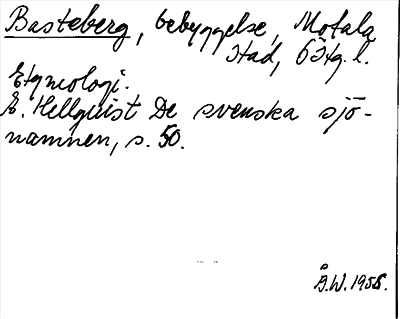 Basteberg, bebyggelse, Motala
stad, Östg. l.
Etymologi.
E. Hellquist De svenska sjö-
namnen, s. 50.
Å.W. 1958.